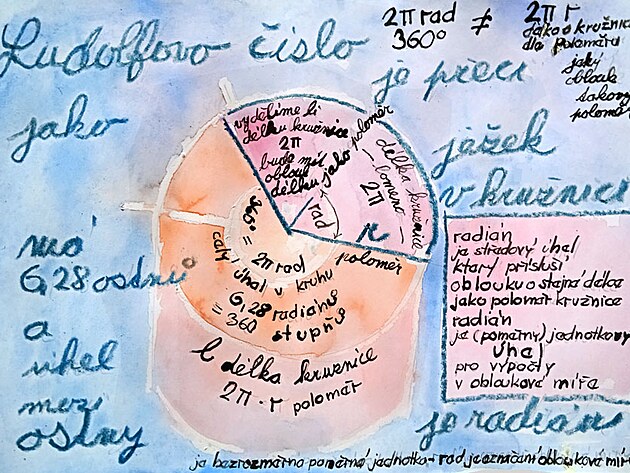 Ludolfovo číslo
je přeci
jako
ježek
v kružnici
má
6,28 ostnů
a
úhel
mezi
ostny
je radián
2π rad ≠ 2π r
360°
délka o kružnice
dle poloměru
jaký
oblouk
takový
poloměr
vydělíme li
délku kružnice
2π
bude mít
oblouk
délku jako poloměr
rad
délka kružnice
lomeno
2π
r
poloměr
360° = 2π rad
celý úhel v kruhu
6,28 radiánů
= 360 stupňů
l délka kružnice
2π · r poloměr
radián
je středový úhel
který přísluší
oblouku o stejné délce
jako poloměr kružnice
radián
je (poměrný) jednotkový
úhel
pro výpočty
v obloukové míře
je bezrozměrná poměrná jednotka - rad je označení obloukové mír